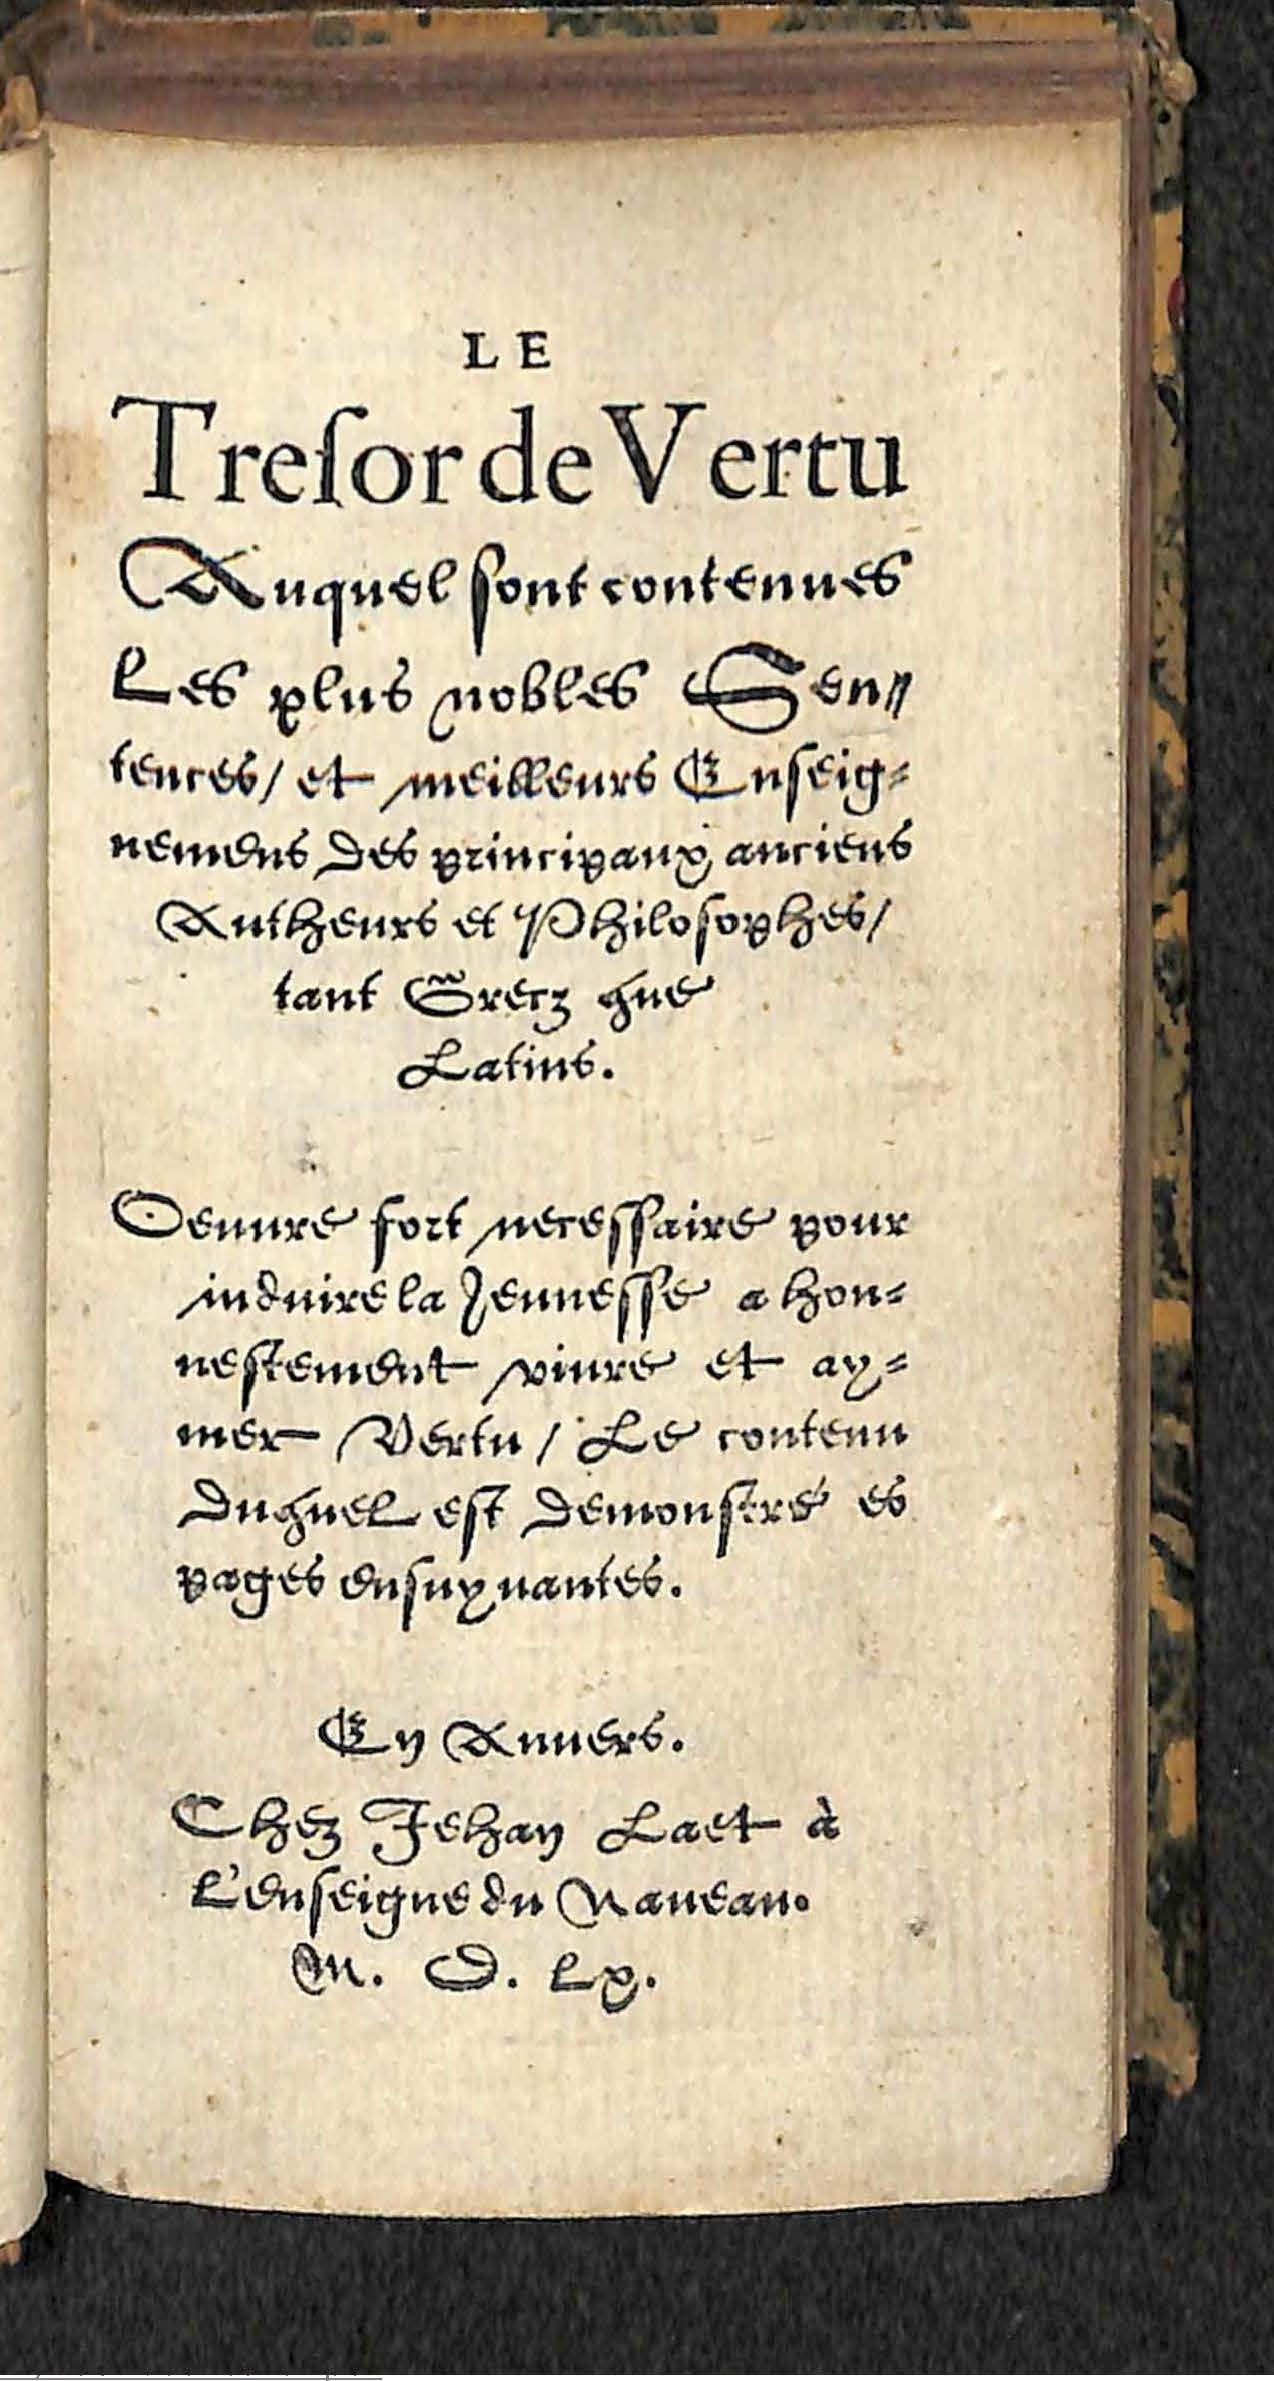 LE
Treſor de Vertu
Auquel sont contenues
Les plus nobles Sen⸗
tences/ et meilleurs Enseig⸗
nemens des principaux anciens
Autheurs et Philosophes/
tant Grecz que
Latins.
Oeuure fort necessaire pour
induire la Jeunesse a hon⸗
nestement viure et ay⸗
mer Vertu / Le contenu
duquel est demonstré es
pages ensuyuantes.
En Anuers.
Chez Jehan Laet à
l'enseigne du Naueau.
M. D. Lx.